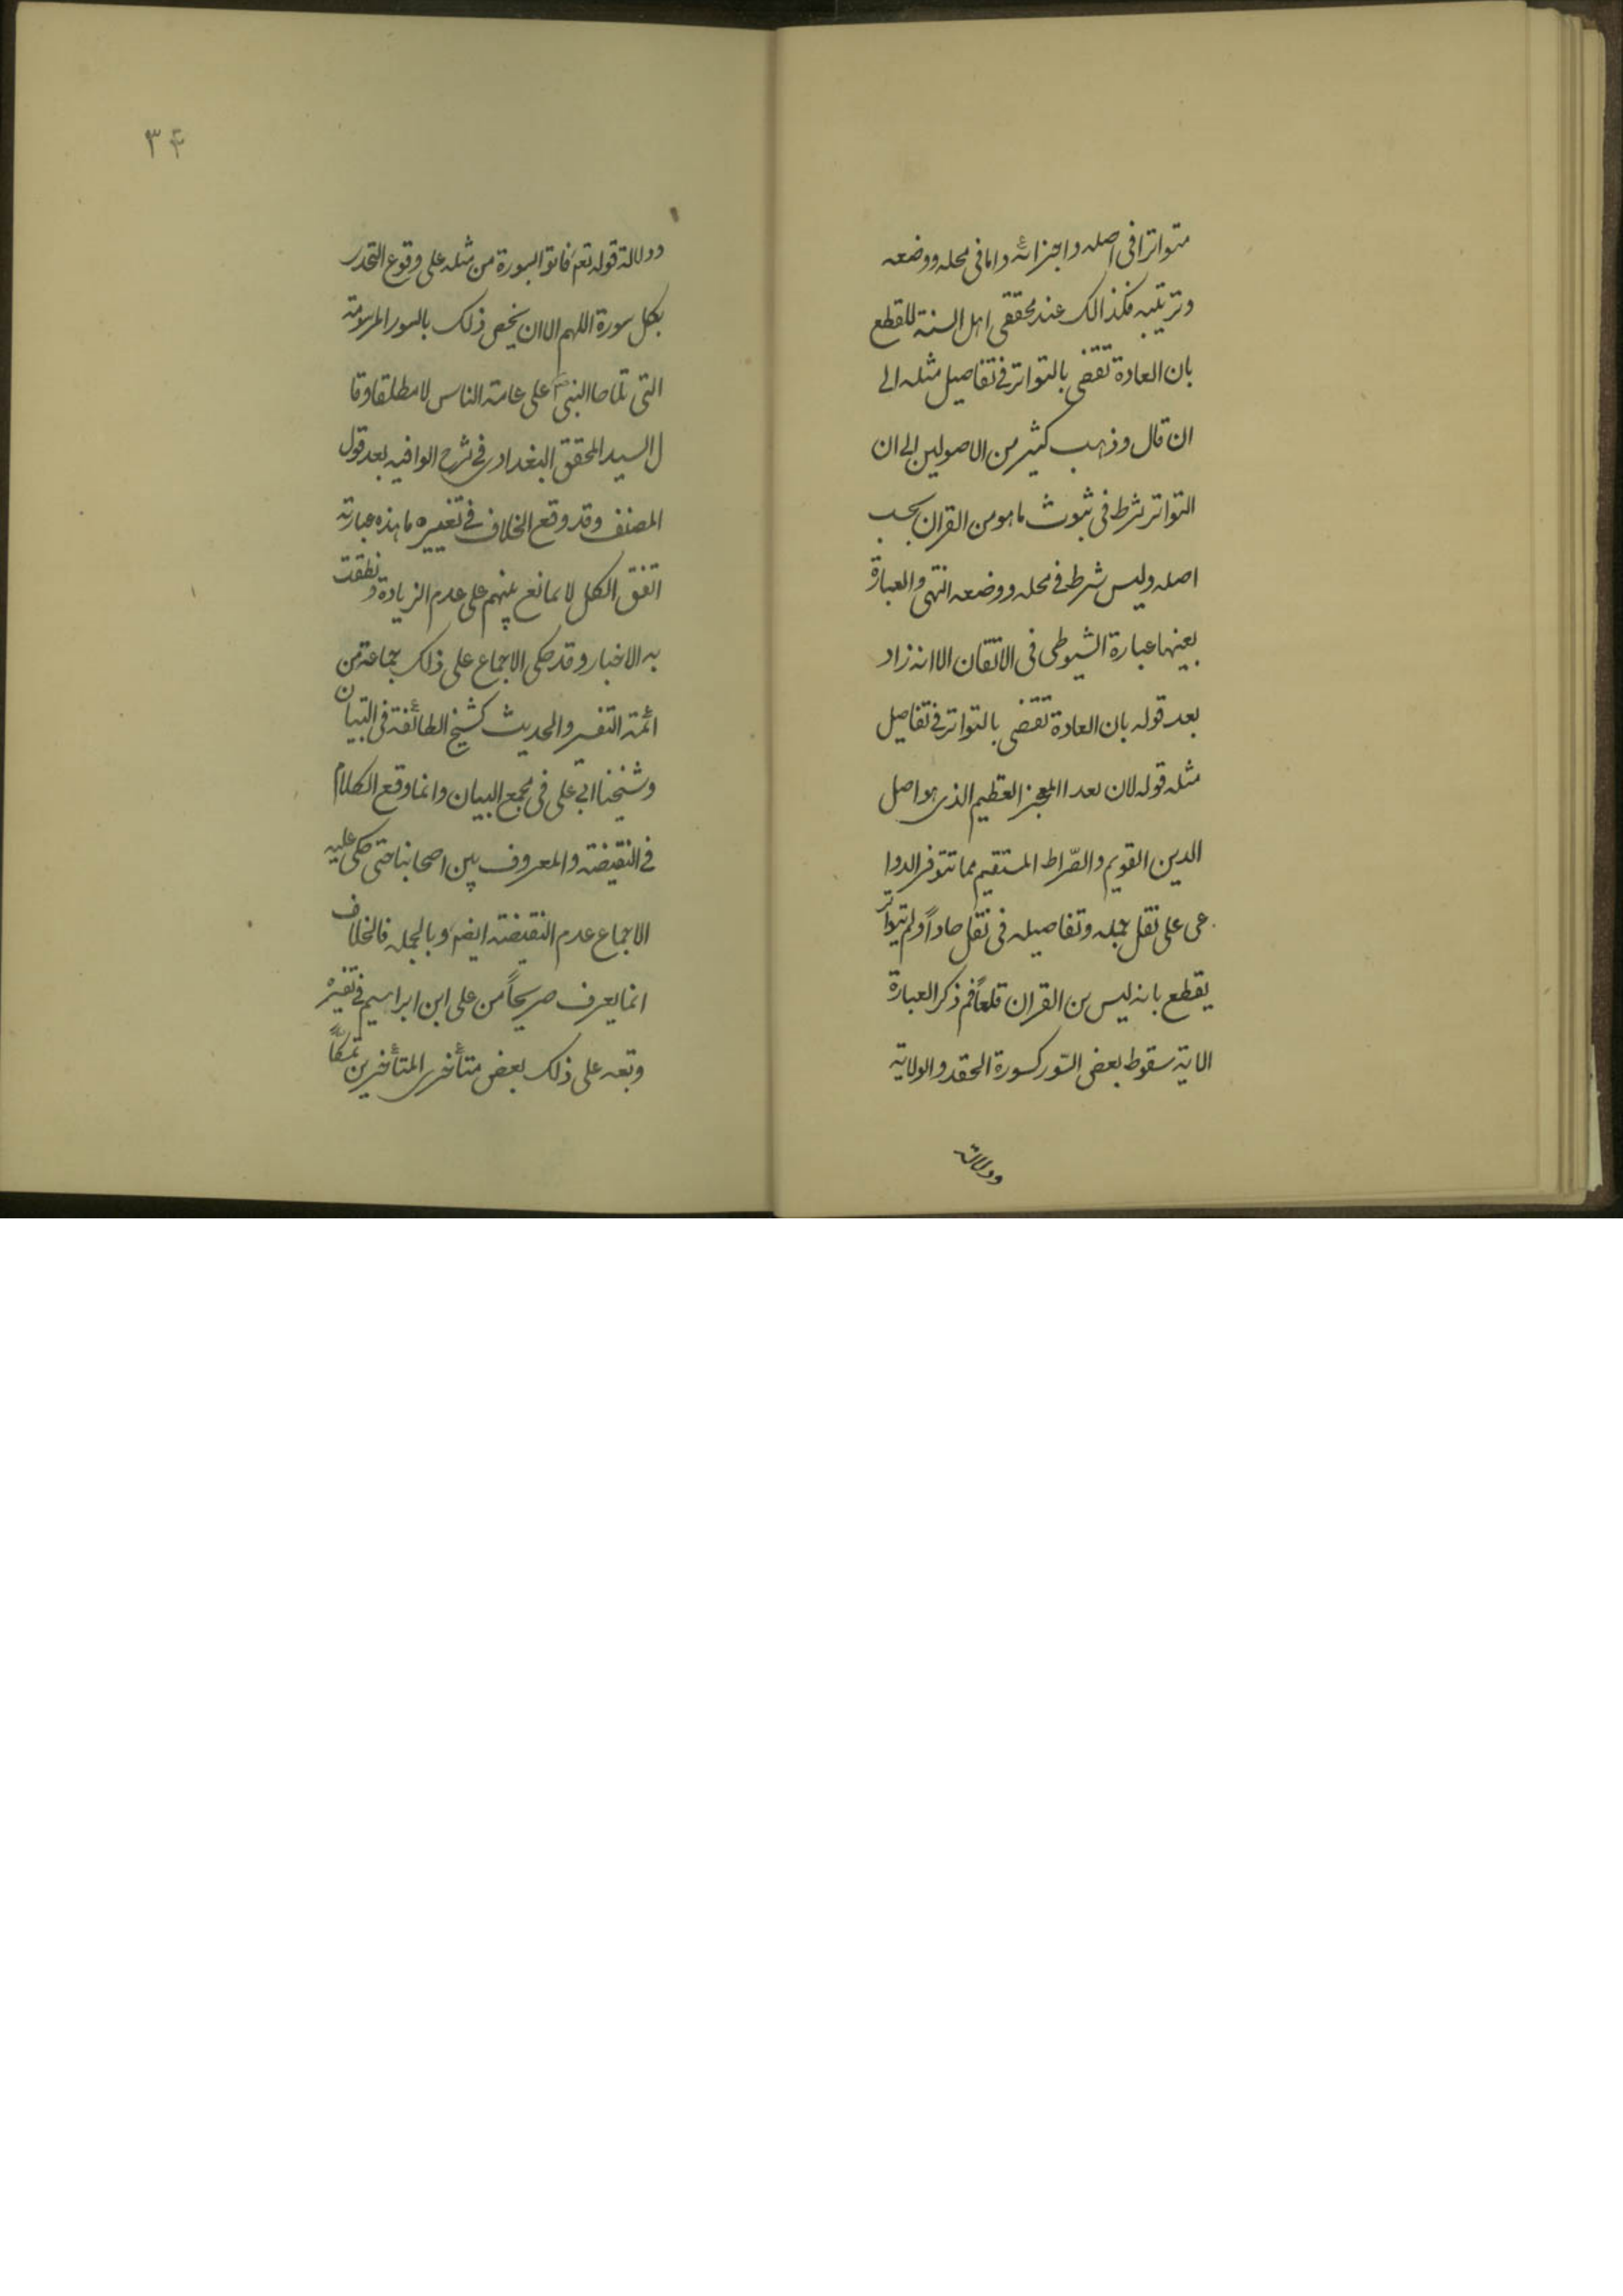 متواترا فی اصله و اجزائه و اما فی محله ووضعه
وترتیبه فکذالک عند محققی اهل السنة للقطع
بان العادة تقضی بالتواتر فی تفاصیل مثله الی
ان قال وذهب کثیر من الاصولین الی ان
التواتر شرط فی ثبوث ما هو من القران بحسب
اصله ولیس شرط فی محله ووضعه انتهی والعبارة
بعینها عبارة الشیوطی فی الاتقان الا انه زاد
بعد قوله بان العادة تقضی بالتواتر فی تفاصیل
مثله قوله لان بعد المعجز العظیم الذی هو اصل
الدین القویم والصّراط المستقیم مما تتوفر الدوا
عی علی نقل جمله وتفاصیله فی نقل حاداً ولم یتواتر
یقطع بانه لیس من القران قلعاً ثم ذکر العبارة
الایة سقوط بعض السّور کسورة الحقد والولایة
ودلالة
۳۴
ودلالة قوله تعم فاتوا بسورة من مثله علی وقوع التحدی
بکل سورة اللهم الا ان یخص ذلک بالسور
التی تلاها النبی ص علی عامة الناس لا مطلقا وقا
ل السید المحقق البغدادی فی شرح الوافیه بعد قول
المصنف وقد وقع الخلاف فی تغییره ما هذه عبارته
اتفق الکل لا بمانع بینهم علی عدم الزیادة و نطقت
به الاخبار وقد حکی الاجماع علی ذلک جماعة من
ائمة التفسیر والحدیث کشیخ الطائفة فی التبیان
وشیخنا ابی علی فی مجمع البیان وانما وقع الکلام
فی النقیضة والمعروف بین اصحابنا حتی حکی علیه
الاجماع عدم النقیضة ایضم وبالجمله فالخلاف
انما یعرف صریحاً من علی ابن ابراهیم فی تفسیره
وتبعه علی ذلک بعض متأخری المتأخرین تمسکاً